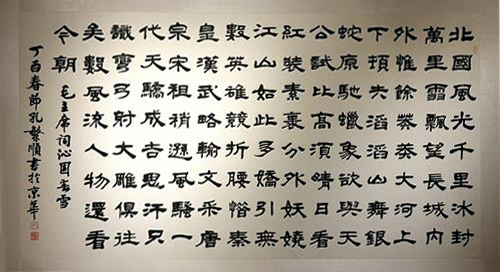 北國風光千里冰封
萬里雪飄望長城內
外惟餘莽莽大河上
下頓失滔滔山舞銀
蛇原馳蠟象欲與天
公試比高須晴日看
紅裝素裹分外妖嬈
江山如此多嬌引無
數英雄競折腰惜秦
皇漢武略輸文采唐
宗宋祖稍遜風騷一
代天驕成吉思汗只
識彎弓射大雕俱往
矣數風流人物還看
今朝 毛主席詞沁園春雪
丁酉春節孔繁順書於京華